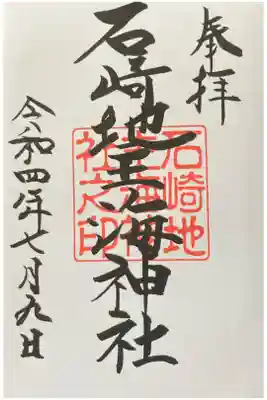 奉拝
石崎地主海神社
石崎地主海神社之印
令和四年七月九日